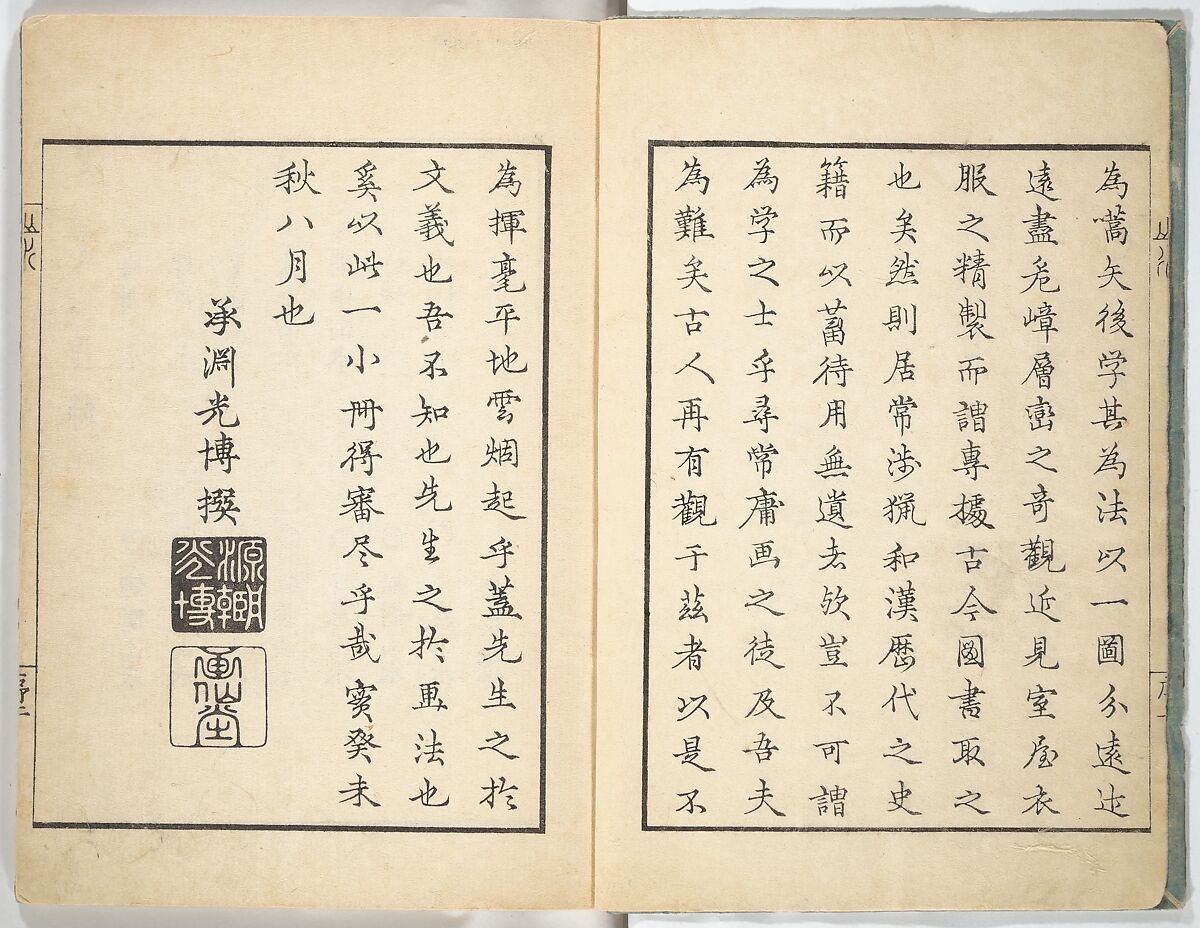 為嚆矢後学其為法以一圖分遠近
遠盡危嶂層巒之奇觀近見室屋衣
服之精製而謂專據古今圖書取之
也矣然則居常渉猟和漢歴代之史
籍而以蓄待用無遺者欤豈不可謂
為学之士乎尋常庸画之徒及吾夫
為難矣古人再有觀于茲者以是不
為揮毫平地雲烟起乎蓋先生之於
文義也吾不知也先生之於画法也
奚以此一小冊得審尽乎哉寳癸未
秋八月也
承淵光博撰
源朝光博
畫仙堂
序二